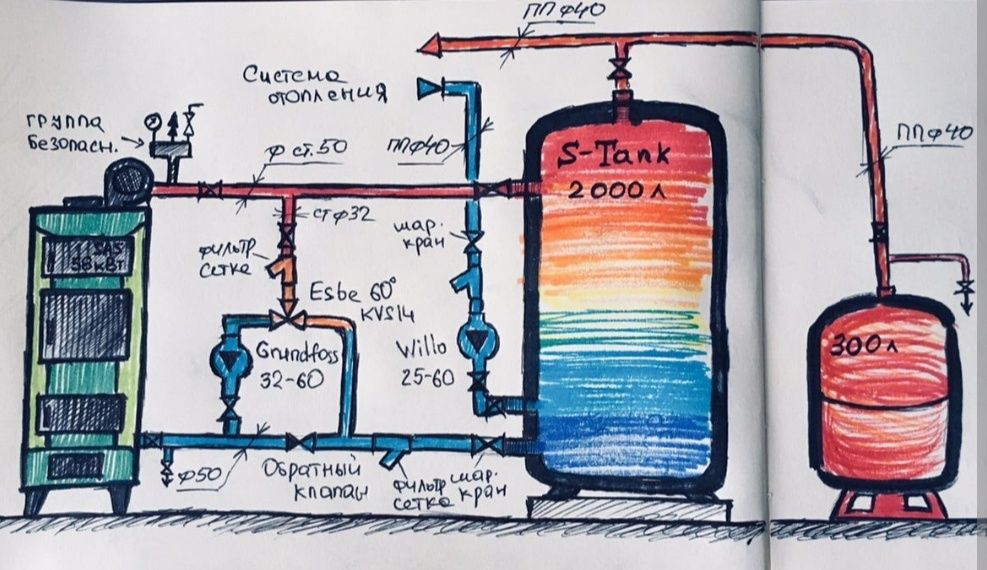 ПП Ф40
Система
отопления
группа
безопасн.
Ф ст.50
ПП Ф40
ПП Ф40
S-Tank
2000 л
ст Ф32
шар.
кран
фильтр
сетка
SAS
Esbe 60°
KVS14
Grundfoss
32-60
Willo
25-60
300 л
Ф50
Обратный
клапан
фильтр
сетка
шар.
кран